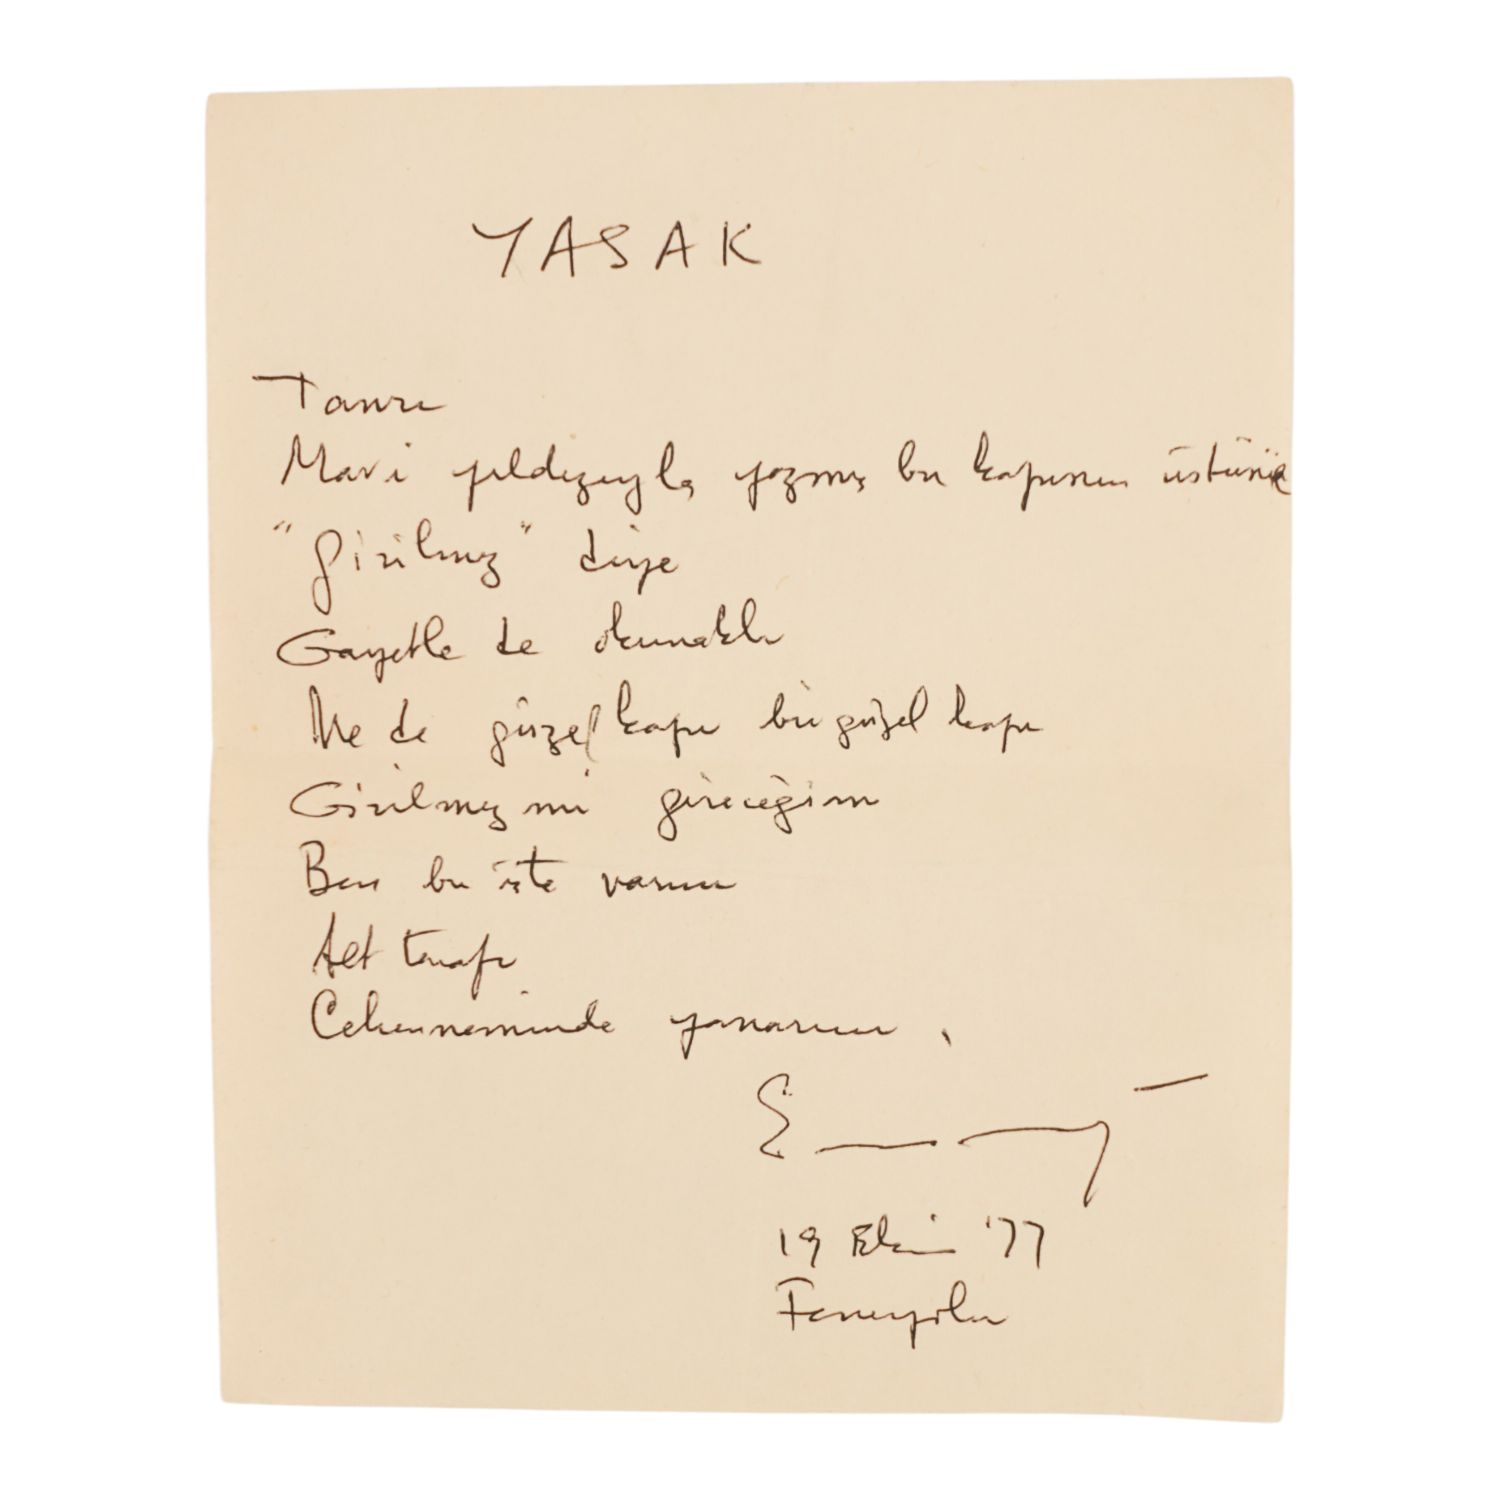 YASAK
Tanrı
Mavi yıldızıyla yazmış bu kapının üstüne
"Girilmez" diye
Gayetle de okunaklı
Ne de güzel kapı bu güzel kapı
Girilmez mi gireceğim
Ben bu işte varım
Alt tarafı
Cehenneminde yanarım.
19 Ekim '77
Feneryolu